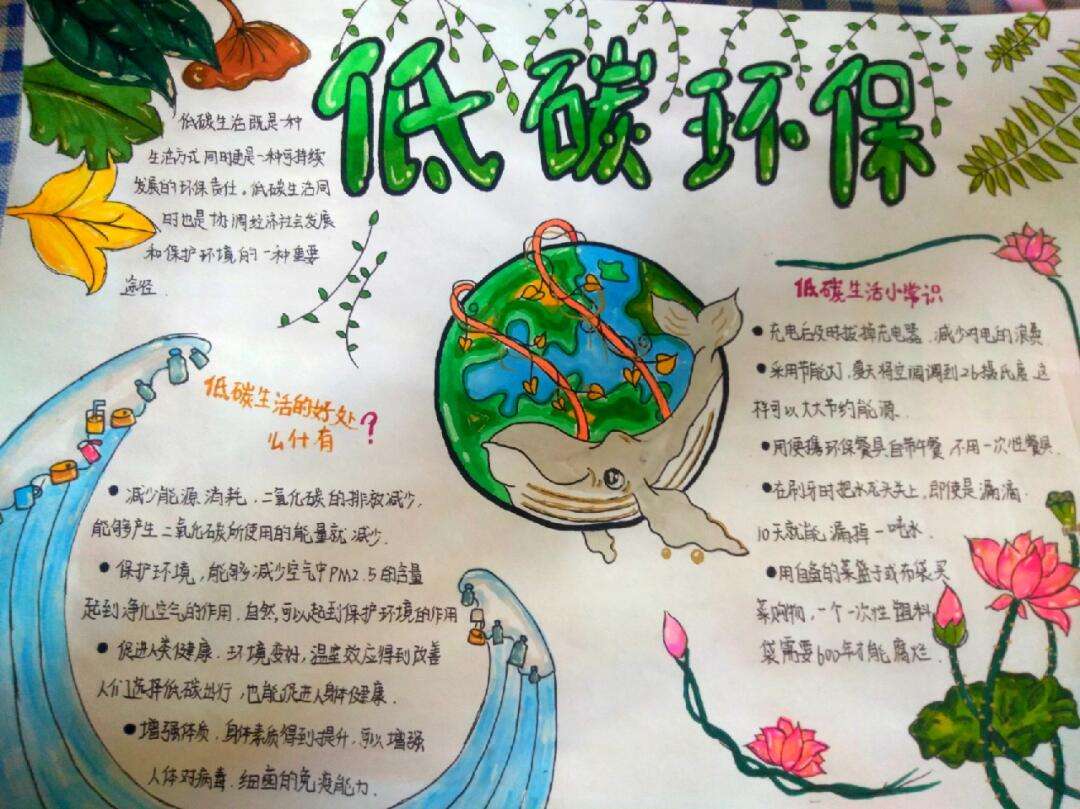 低碳环保
低碳生活既是一种
生活方式同时更是一种可持续
发展的环保责任。低碳生活同
时也是协调经济社会发展
和保护环境的一种重要
途径.
低碳生活的好处
么什有?
减少能源消耗,二氧化碳的排放减少,
能够产生二氧化碳所使用的能量就减少.
保护环境,能够减少空气中PM2.5的含量
起到净化空气的作用.自然可以起到保护环境的作用
促进人类健康.环境变好,温室效应得到改善
人们选择低碳出行,也能促进人身体健康.
增强体质,身体素质得到提升,可以增强
人体对病毒.细菌的免疫能力.
低碳生活小常识
充电后及时拔掉充电器.减少对电的浪费
采用节能灯,夏天将空调调到26摄氏度.这
样可以大大节约能源.
用便携环保餐具自带午餐不用一次性餐具.
在刷牙时把水龙头关上,即使是漏滴.
10天就能漏掉一吨水.
用自备的菜篮子或布袋买
菜购物,一个一次性塑料
袋需要600年才能腐烂.